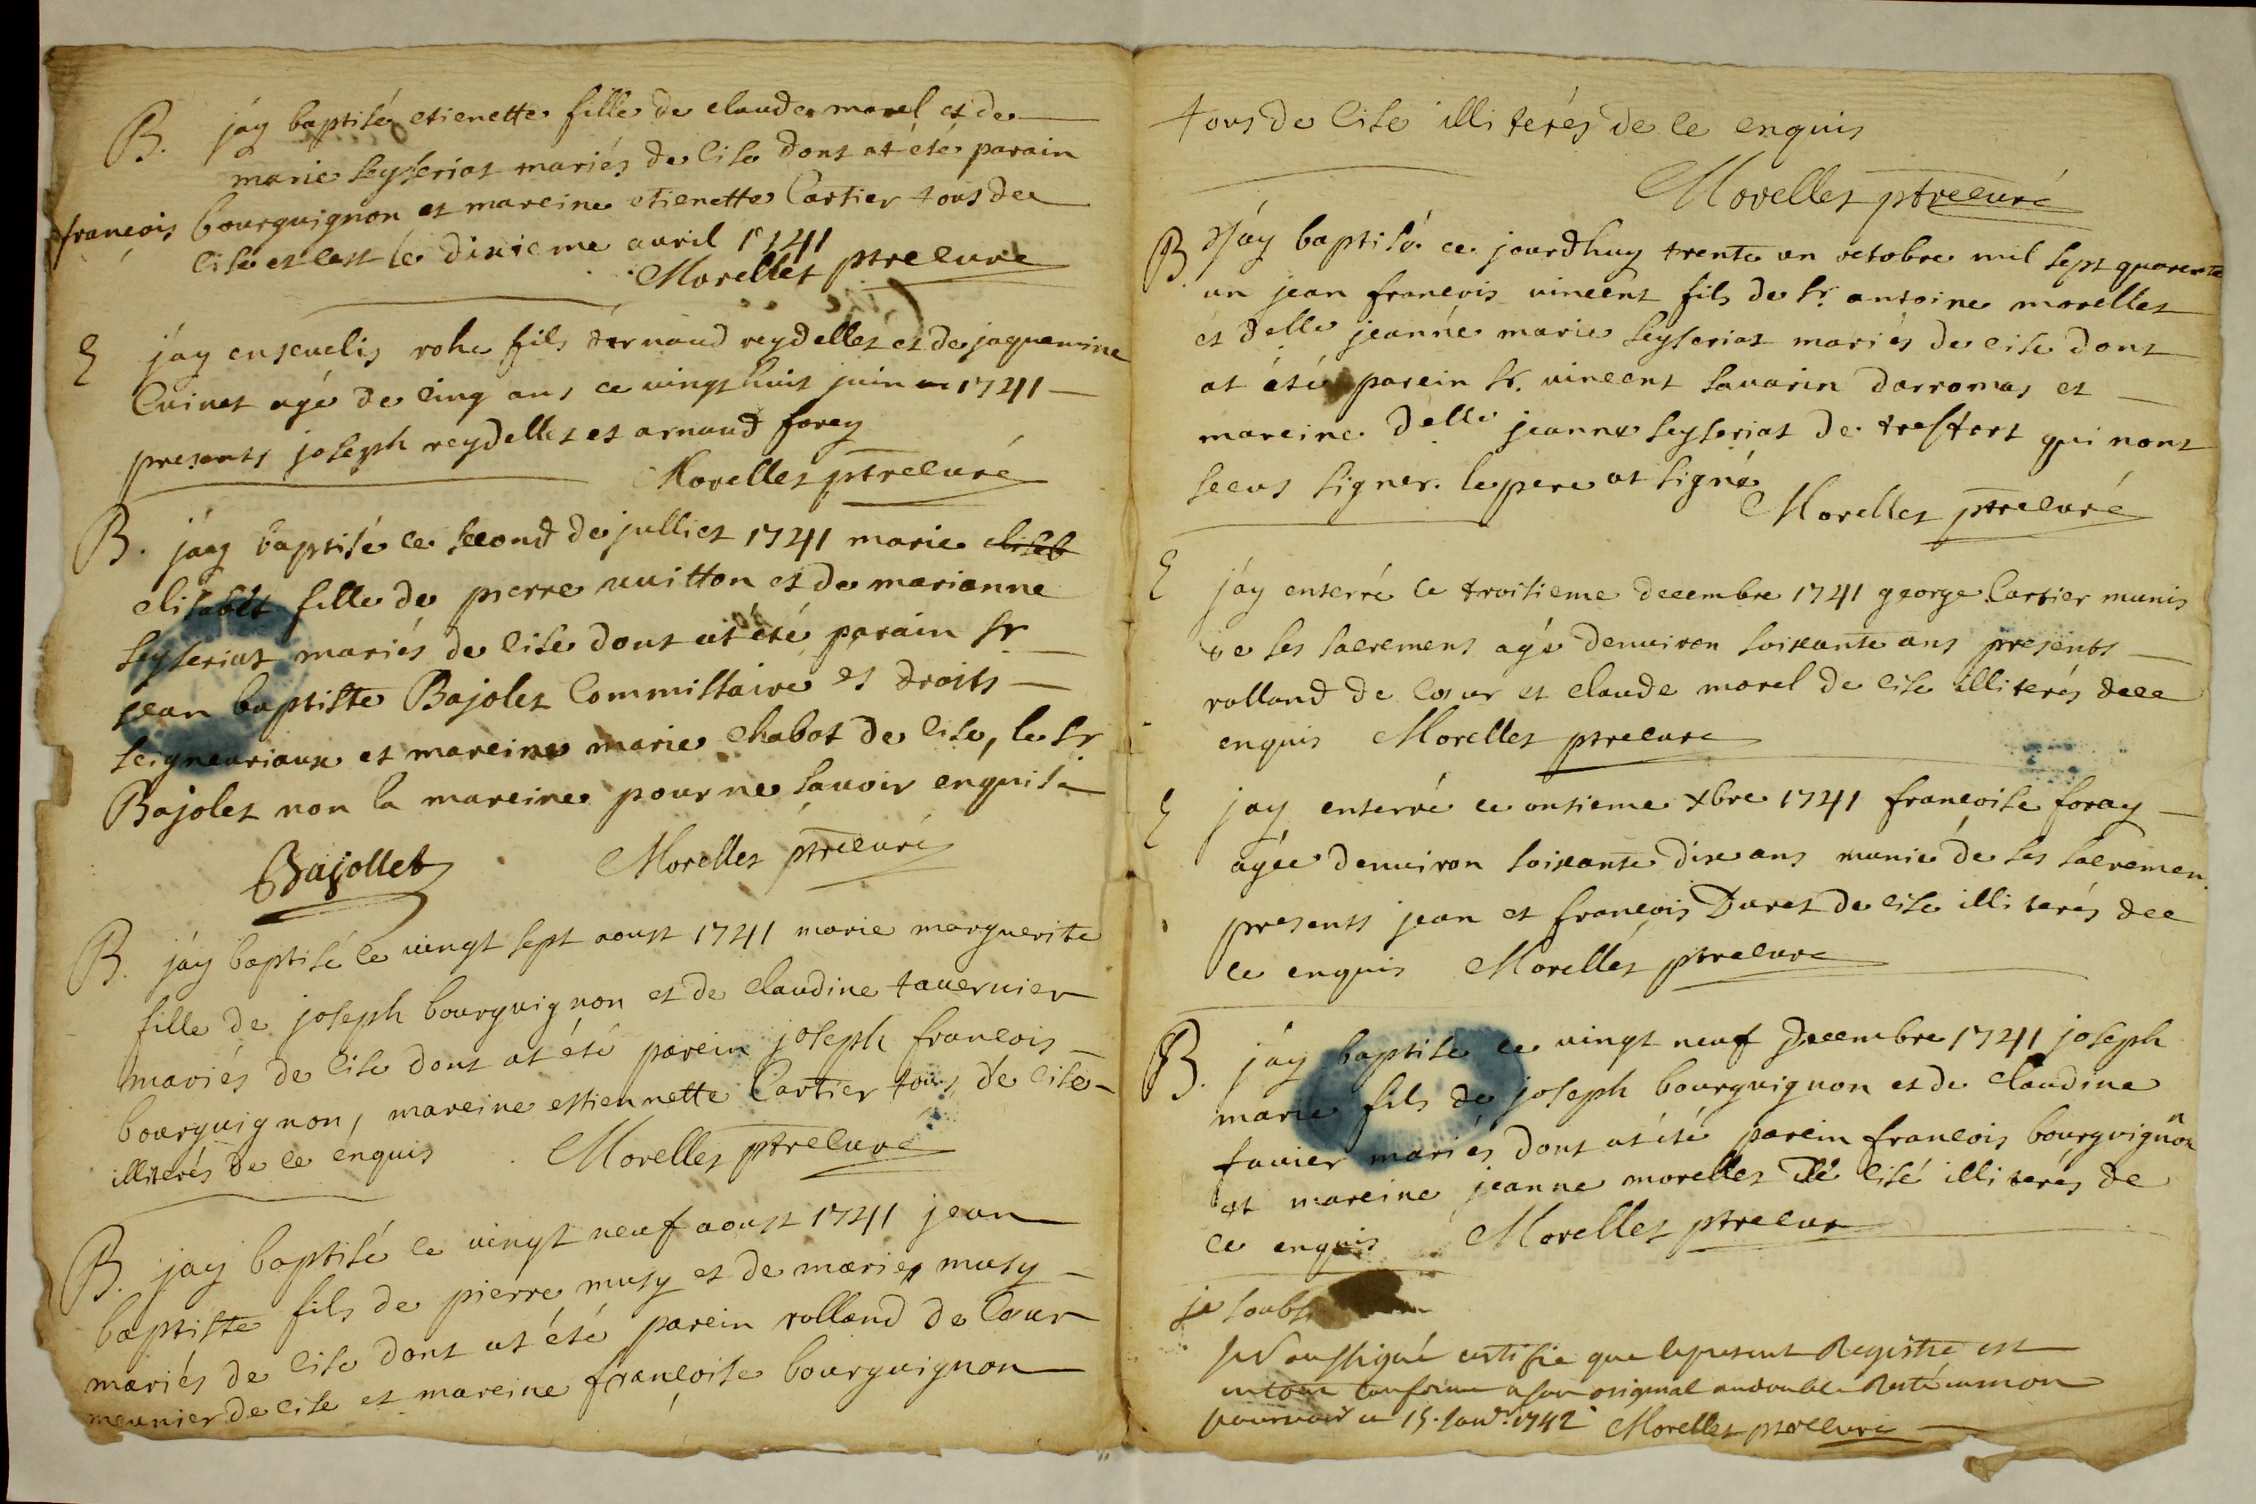 B. jáy baptisé etienette fille de claude morel et de
marie seyseriat mariés de cise dont at été parain
francois bourguignon et mareine etienette Cartier tous de
cise et cest le dixieme auril 1741
Morellet ptre curé
E jáy enseuelis rohe fils dernaud reydellet et de jaquemine
Cuinet agé de cinq ans ce uingt huit juin 1741
presents joseph reydellet et arnaud forey
Morellet ptre curé
B. jáy baptisé ce second de julliet 1741 marie eliseb
elisabet fille de pierre uuitton et de marianne
seyseriat mariés de cise dont at été parain sr
jean baptiste Bajolet Commissaire es droits
seigneuriaux et mareine marie chabot de cise, le sr
Bajolet non la mareine pour ne sauoir enquise
Bajollet Morellet ptre curé
B. jáy baptisé ce uingt sept aoust 1741 marie marguerite
fille de joseph bourguignon et de claudine tauernier
mariés de cise dont at été parein joseph francois
bourguignon, mareine estiennette Cartier tous de cise
illiterés de ce enquis Morellet ptre curé
B. jay baptisé ce uingt neuf aoust 1741 jean
baptiste fils de pierre musy et de marie musy
mariés de cise dont at été parein rolland de Cour
meunier de cise et mareine francoise bourguignon
tous de cise illiterés de ce enquis
Morellet ptre curé
B jáy baptisé ce jourdhuy trente un octobre mil sept quarente
un jean francois uincent fils de sr. antoine morellet
et delle jeanne marie seyseriat mariés de cise dont
at été parein sr. uincent sauarin darromas et
mareine delle jeanne seyseriat de treffort qui nont
sceus signer. le pere at signé
Morellet ptre curé
E jáy enterré ce troisieme decembre 1741 george Cartier munis
de ses sacremens agé denuiron soixante ans presents
rolland de Cour et claude morel de cise illiterés de ce
enquis Morellet ptre curé
E jay enterré ce onsieme xbre 1741 francoise foray
agée denuiron soixante dix ans munie de ses sacremen
presents jean et francois Duret de cise illiterés de
ce enquis Morellet ptre curé
B. jáy baptisé ce uingt neuf decembre 1741 joseph
marie fils de joseph bourguignon et de claudine
fauier mariés dont at été parein francois bourguignon
et mareine jeanne morellet de cise illiterés de
ce enquis Morellet ptre cur
je soubs
Je soussigné certifie que le present Registre est
en tout conforme a son original au double resté en mon
pouuoir ce 15. Janr. 1742 Morellet ptre curé